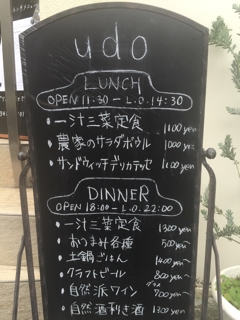 udo
LUNCH
OPEN 11:30 - L.O. 14:30
・一汁三菜定食 1100yen
・農家のサラダボウル 1000yen
・サンドウィッチデリカテッセ 1100yen
DINNER
OPEN 18:00 - L.O. 22:00
・一汁三菜定食 1300yen
・おつまみ各種 500yen
・土鍋ごはん 1400yen~
・クラフトビール 800yen~
・自然派ワイン グラス 700yen
・自然酒利き酒 1300yen